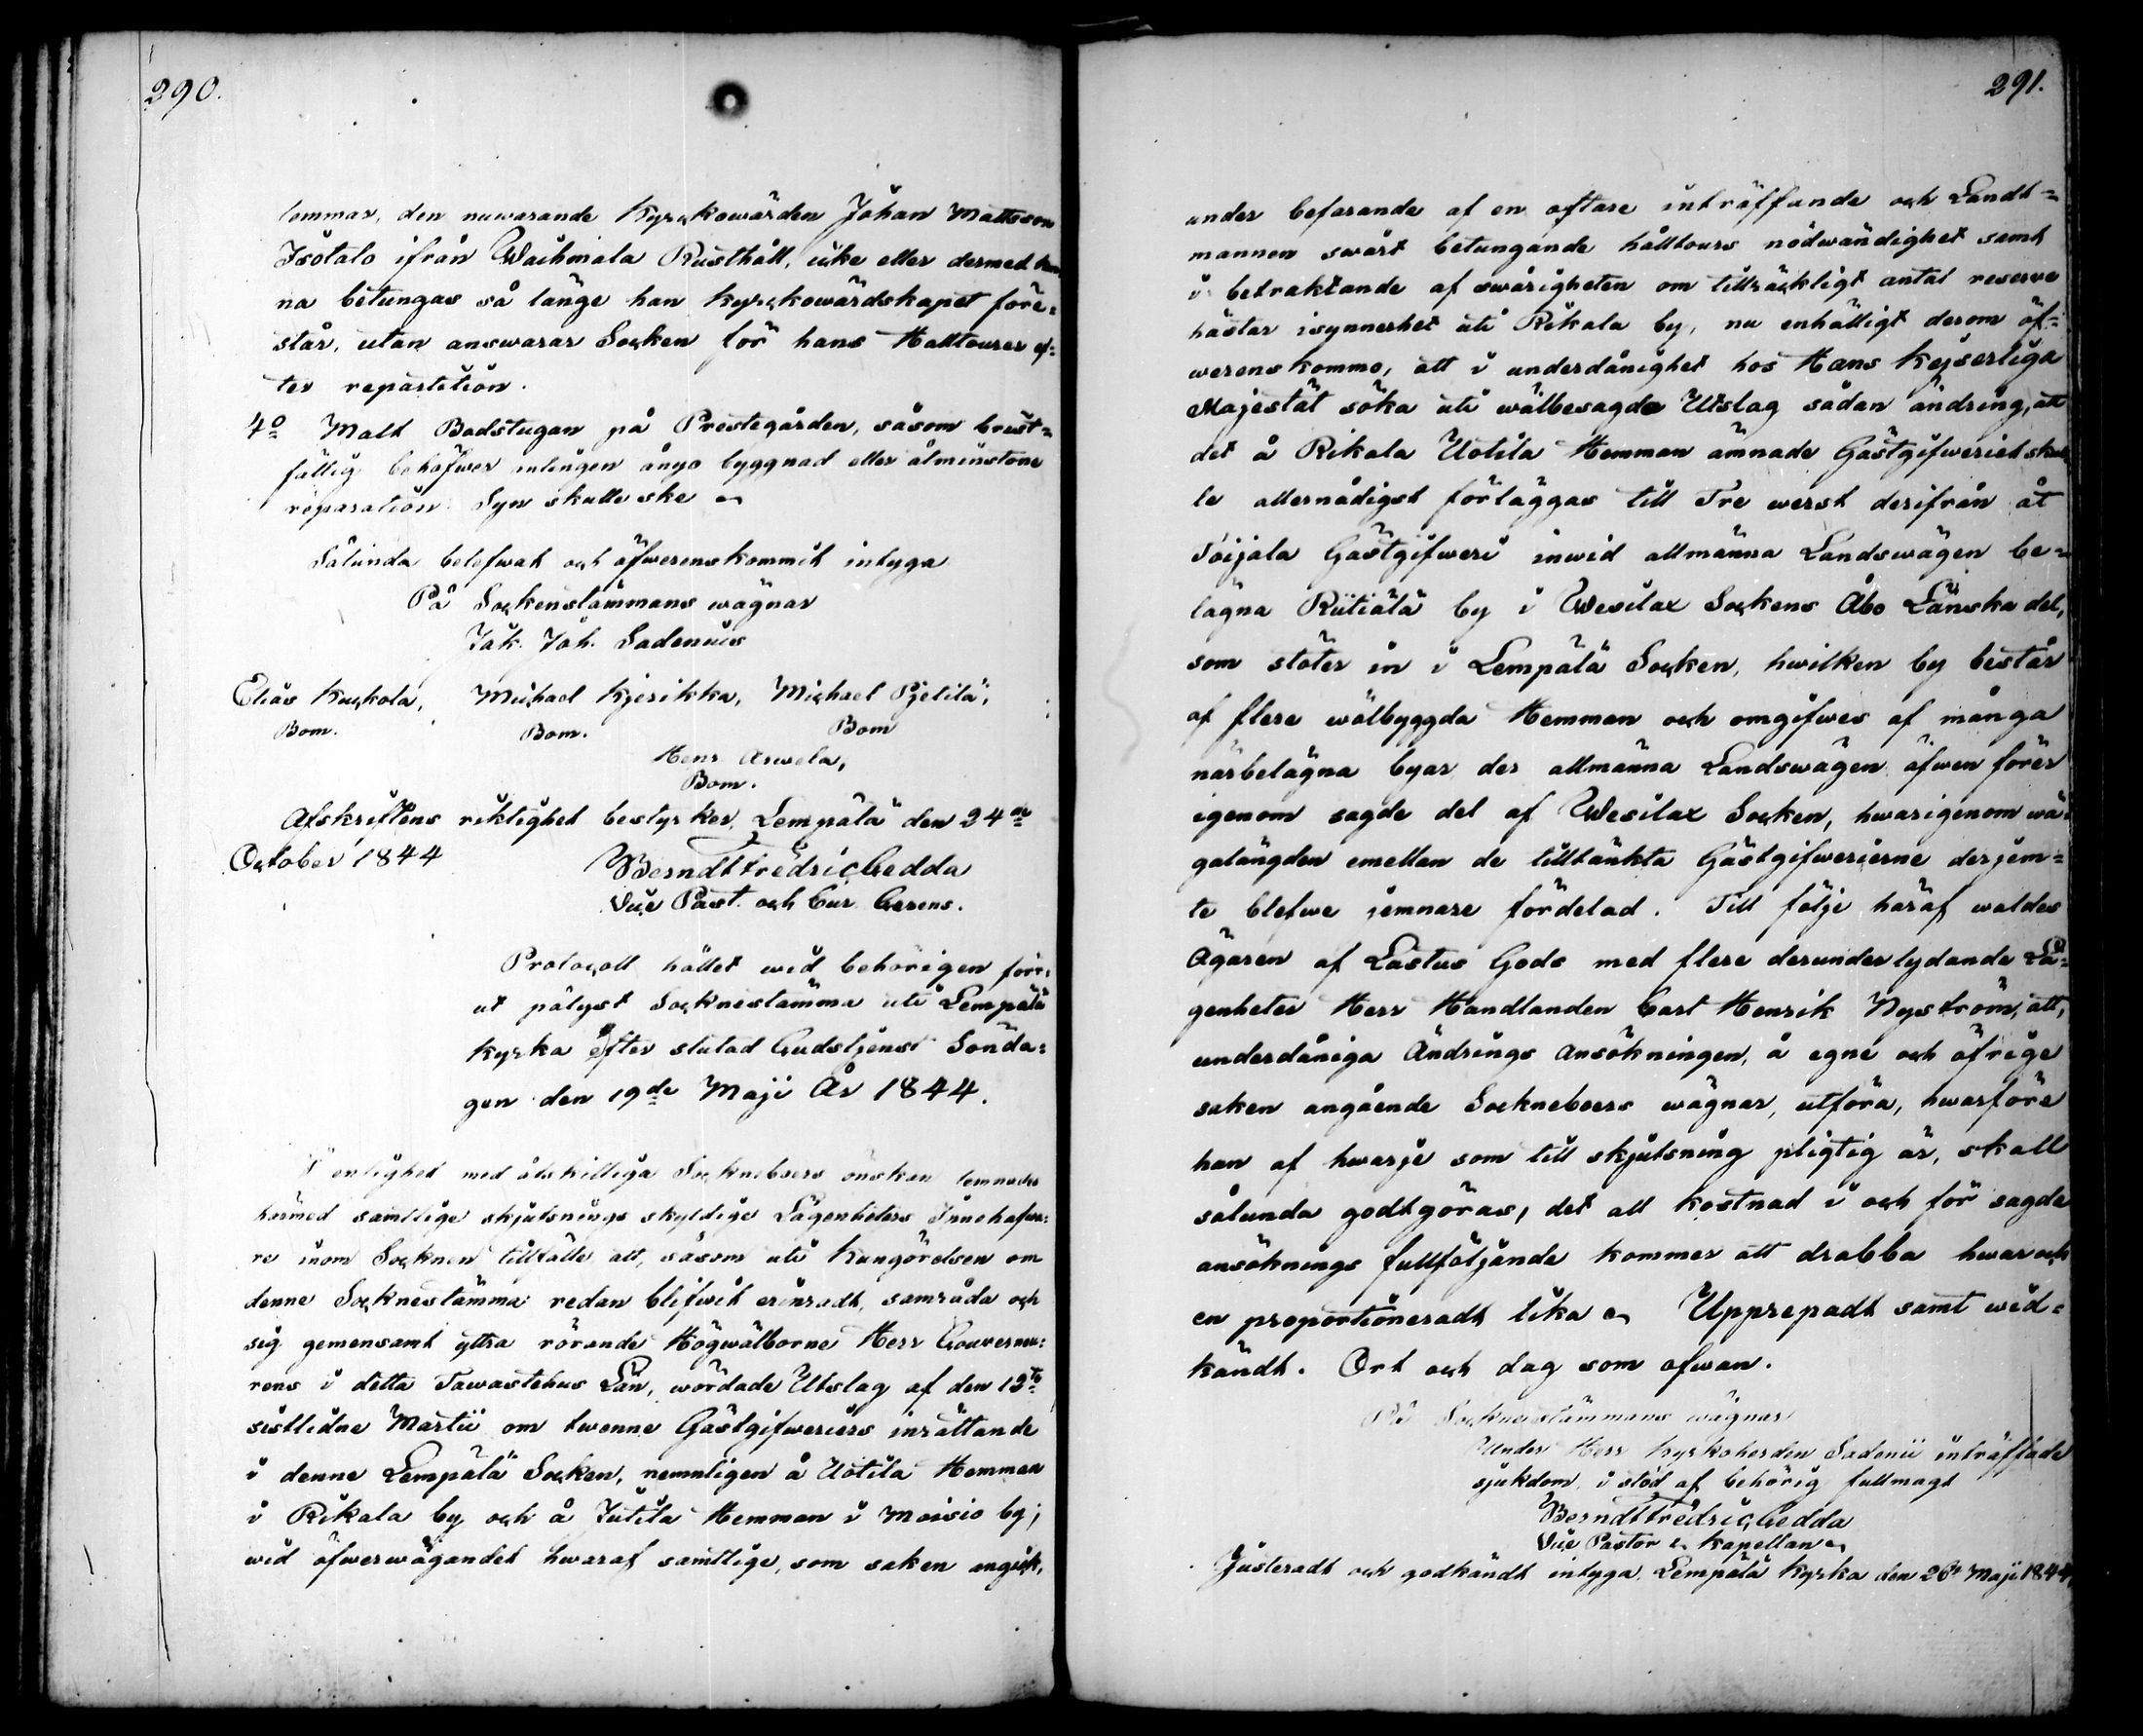 290.
lemmar, den nuwarande Kyrckowärden Johan Mattsson
Isotalo ifrån Wachmala Rusthåll, icke eller dermed kun
na betungas så länge han Kyrckowärdskapet före=
står, utan answarar Socken för hans Halltourer ef=
ter repartition.
4o Malt Badstugan på Prestegården, såsom brist=
fällig behöfwer antingen ånyo byggnad eller åtminstone
reparation. Syn skulle ske
Sålunda belefwat och öfwerenskommit intyga
På Sockenstämmans wägnar
Jak. Joh. Sadenius
Elias Kuckola, Michael Kjerikka, Michael Pjetilä,
Bom. Bom. Bom
Henr Arwela,
Bom.
Afskriftens riktighet bestyrker, Lempälä den 24de
October 1844
Berndt Fredric Gedda
Vice Past. och Cur. Gerens.
Protocoll hållet wid behörigen förr=
ut pålyst Socknestämma uti Lempälä
Kyrka efter slutad Gudstjenst Sönda=
gen den 19de Maji År 1844.
I enlighet med åtskilliga Sockneboers önskan lemnades
härmed samtlige skjutsnings skyldige Lägenheters Innehafwa=
re inom Socknen tillfälle att, såsom uti Kungörelsen om
denne Socknestämma redan blifwit erinradt, samråda och
sig gemensamt yttra rörande Högwälborne Herr Gouverneu=
rens i detta Tawastehus Län, wördade Utslag af den 12te
sistlidne Martii om twenne Gästgifweriers inrättande
i denne Lempälä Socken, nemnligen å Uotila Hemman
i Rikala by och å Jutila Hemman i Moisio by;
wid öfwerwägandet hwaraf samtlige, som saken angick,
291.
under befarande af en oftare inträffande och Landt=
mannen swårt betungande hålltours nödwändighet samt
i betraktande af swårigheten om tillräckligt antal reserve
hästar isynnerhet uti Rikala by, nu enhälligt derom öf=
werenskommo, att i underdånighet hos Hans Kejserliga
Majestät söka uti wälbesagde Utslag sådan ändring, att
det å Rikala Uotila Hemman ämnade Gästgifweriet skul
le allernådigst förläggas till Tre werst derifrån åt
Toijala Gästgifweri inwid allmänna Landswägen be=
lägna Riitiälä by i Wesilax Sockens Åbo Länska del,
som stöter in i Lempälä Socken, hwilken by består
af flere wälbyggda Hemman och omgifwes af många
närbelägna byar der allmänna Landswägen äfwen förer
igenom sagde del af Wesilax Socken, hwarigenom wä=
galängden emellan de tilltänkta Gästgifwerierne derjem=
te blefwe jemnare fördelad. Till följe häraf waldes
Ägaren af Lastus Gods med flere derunder lydande Lä=
genheter Herr Handlanden Carl Henrik Nyström, att,
underdåniga Ändrings ansökningen, å egne och öfrige
saken angående Sockneboers wägnar, utföra, hwarföre
han af hwarje som till skjutsning pligtig är, skall
sålunda godtgöras, det all kostnad i och för sagde
ansöknings fullföljande kommer att drabba hwar och
en proportioneradt lika Upprepadt samt wid=
kändt. Ort och dag som ofwan.
På Socknestämmans wägnar
Under Herr Kyrkoherden Sadenii inträffade
sjukdom, i stöd af behörig fullmagt
Berndt Fredric Gedda
Vice Pastor Kapellan
Justeradt och godkändt intyga. Lempälä Kyrka den 26te Maji 1844.